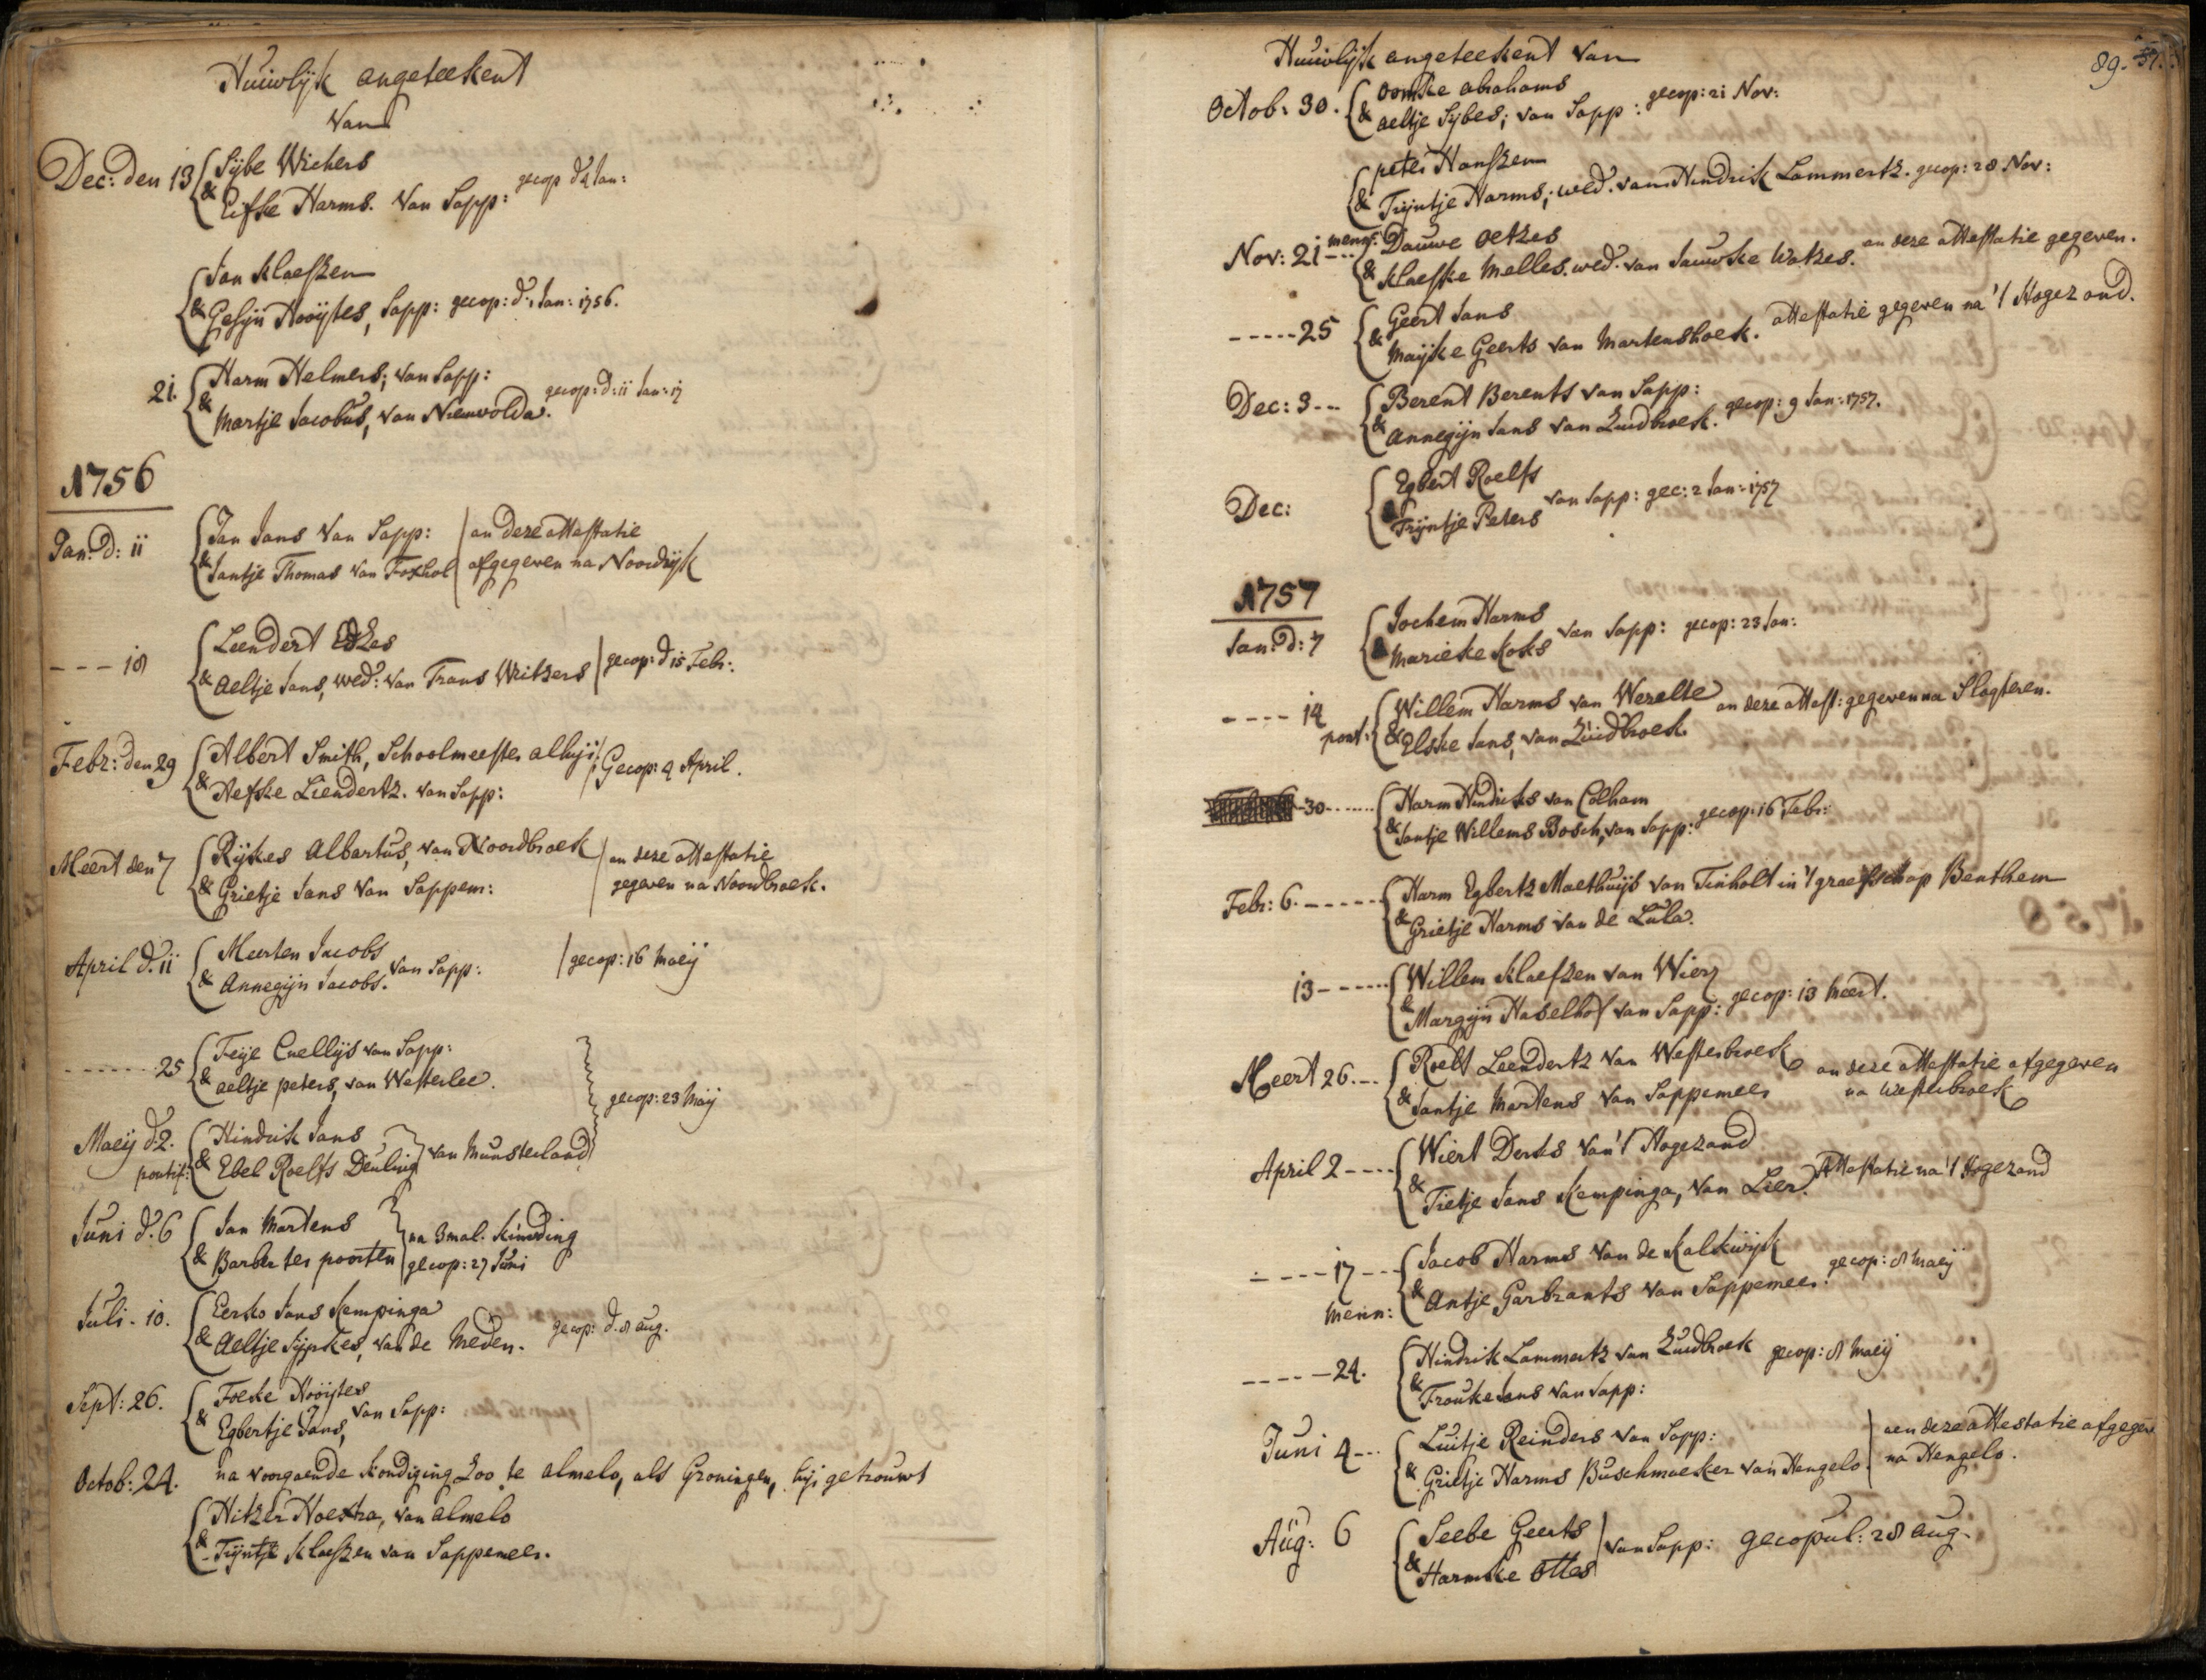 Huiwlijk angeteekent
Van
Dec: den 13 { Sijbe Wichers
& Eifke Harms. Van Sapp: gecop d 4 Jan:
{ Jan Klaessen
& Gesijn Hooijtes, Sapp: gecop: d. 1 Jan: 1756.
21. { Harm Helmers; van Sapp:
& Martje Jacobus, van Nieuwolda. gecop: d: 11 Jan:
1756
Jan: d: 11 { Jan Jans Van Sapp: | an deze attestatie
& Jantje Thomas van Foxhol | afgegeven na Noordijk
--- 18 { Leendert Edzes
& Aeltje Jans, wed: van Frans Writzers | gecop: d 15 Febr:
Febr: den 29 { Albert Smith, Schoolmeester alhijr | Gecop: 4 April.
& Hefke Liendertz. van Sapp:
Meert den 7 { Rijkes Albartus, van Noordbroek | an deze attestatie
& Grietje Jans van Sappem: | gegeven na Noordbroek.
April d. 11 { Meerten Jacobs
& Annegijn Jacobs. van Sapp: | gecop: 16 Maeij
------- 25 { Feije Cnellijs van Sapp:
& aeltje peters, van Westerlee.
gecop: 23 Maij
Maeij d 2. { Hindrik Jans
pontif: & Ebel Roelfs Deuling } van Munsterland
Juni d. 6 { Jan Martens } na 3 mal. kindding
& Barber ter poorten | gecop: 27 Juni
Juli - 10. { Eerko Jans Kempinga
& Aeltje Sijpkes, van de Meden. gecop: d. 8 aug.
Sept: 26. { Focke Hooijtes
& Egbertje Jans, van Sapp:
Octob: 24. na voorgaende kondiging Zoo te almelo, als Groningen, hijr getrouwt
{ Hitzer Hoextra, van almelo
& Trijntje Klaessen van Sappemeer.
Huiwlijk angeteekent van
89.
Octob: 30. { Oomke abrahams
& aeltje Sijbes; van Sapp: gecop: 21 Nov:
{ peter Hanssen
& Trijntje Harms; wed. van Hindrik Lammertz. gecop: 28 Nov:
Nov: 21 -- menn: { Douwe Oetzes
& Klaeske Melles. wed. van Jauwke Watzes. an deze attestatie gegeven.
----- 25 { Geert Jans
& Maijke Geerts van Martenshoek. attestatie gegeven na 't Hogezand.
Dec: 3 -- { Berent Berents van Sapp:
& annegijn Jans van Zuidbroek. gecop: 9 Jan: 1757.
Dec: { Egbert Roelfs
& Trijntje Peters van Sapp: gec: 2 Jan: 1757
1757
Jan: d: 7 { Jochem Harms
& Marieke Koks van Sapp: gecop: 23 Jan:
---- 14 { Willem Harms van Werelte an deze attest: gegeven na Slogteren.
pont: & Elske Jans, van Zuidbroek.
- 30 ------ { Harm Hindriks van Colham
& Jantje Willems Bosch, van Sapp: gecop: 16 Febr:
Febr: 6. ----- { Harm Egbertz Maethuijs van Tinholt in 't graefschap Benthem
& Grietje Harms van de Lula.
13 ------ { Willem Klaessen van Wierz
& Margijn Haselhof van Sapp: gecop: 13 Meert.
Meert 26. -- { Roelf Leendertz van Westerbroek an deze attestatie afgegeven
& Jantje Martens van Sappemeer na Westerbroek
April 2 ---- { Wiert Derks van 't Hogezand
& Tietje Jans Kempinga, van Lier. Attestatie na 't Hogezand
---- 17 --- { Jacob Harms van de Kalkwijk gecop: 8 Maeij
Menn: & Antje Garbrants van Sappemeer.
----- 24. { Hindrik Lammertz van Zuidbroek gecop: 8 Maeij
& Frouke Jans van Sapp:
Juni 4 -- { Luitje Reinders van Sapp: | aen deze attestatie afgegeve
& Grietje Harms Buschmaeker van Hengelo. | na Hengelo.
Aug: 6 { Seebe Geerts
& Harmke Ottes | van Sapp: gecopul: 28 aug.